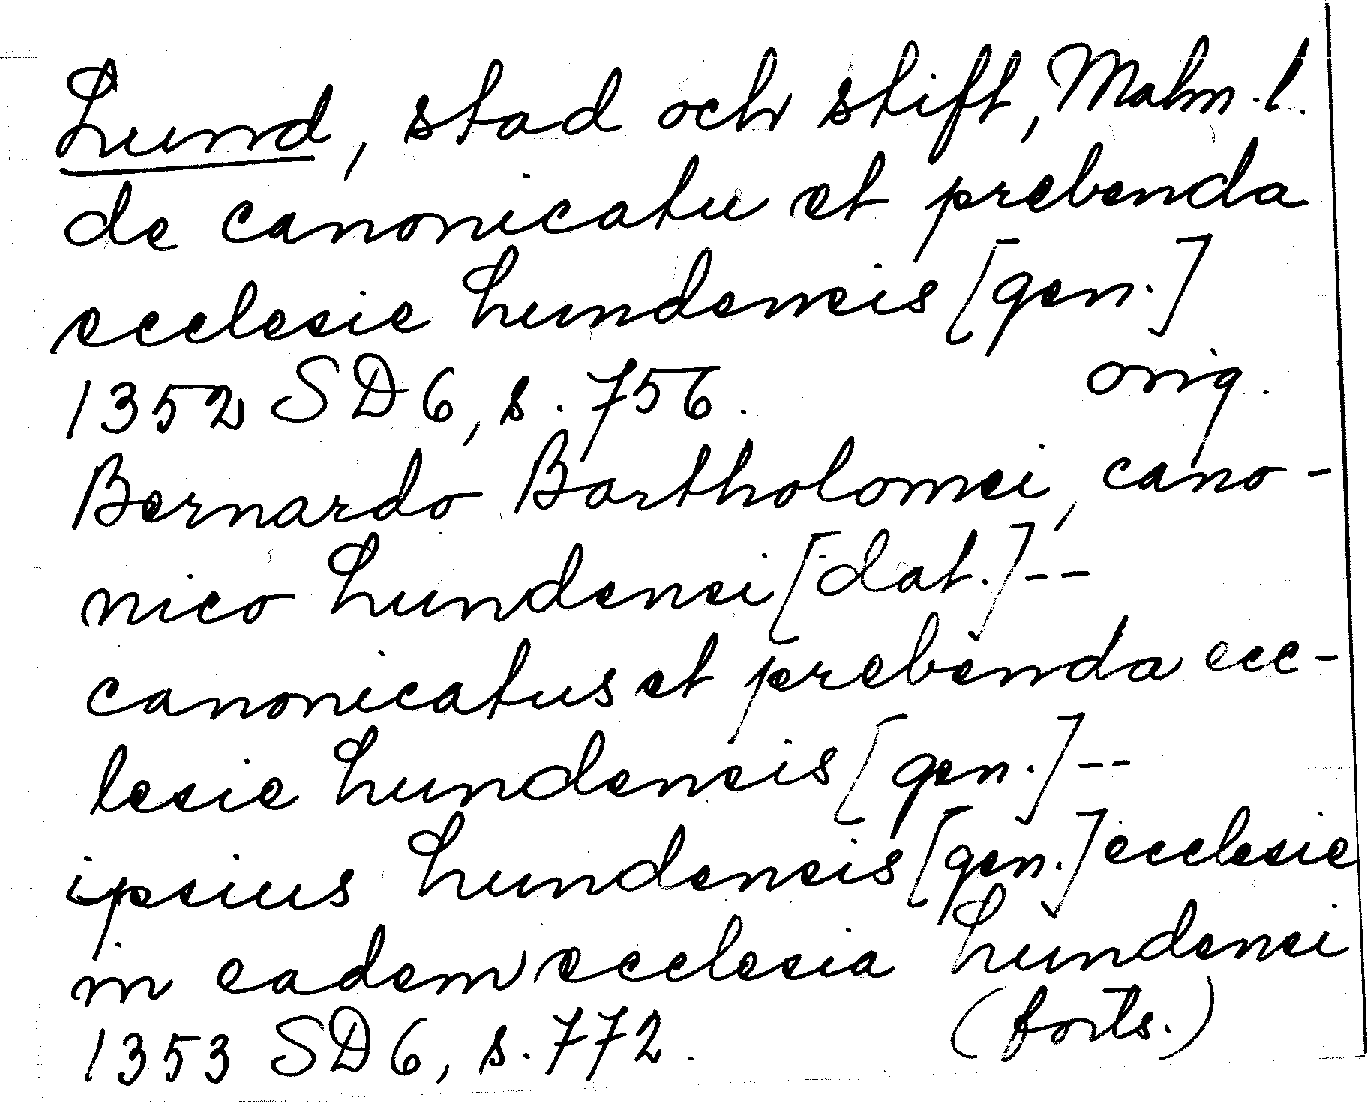 Lund, stad och stift, Malm. l.
de canonicatu et prebenda
ecclesie Lundensis [gen.]
1352 SD 6, s. 756. orig.
Bernardo Bartholomei, cano-
nico Lundensi [dat.] --
canonicatus et prebenda ecc-
lesie Lundensis [gen.] --
ipsius Lundensis [gen.] ecclesie
in eadem ecclesia Lundensi
1353 SD 6, s. 772. (forts.)